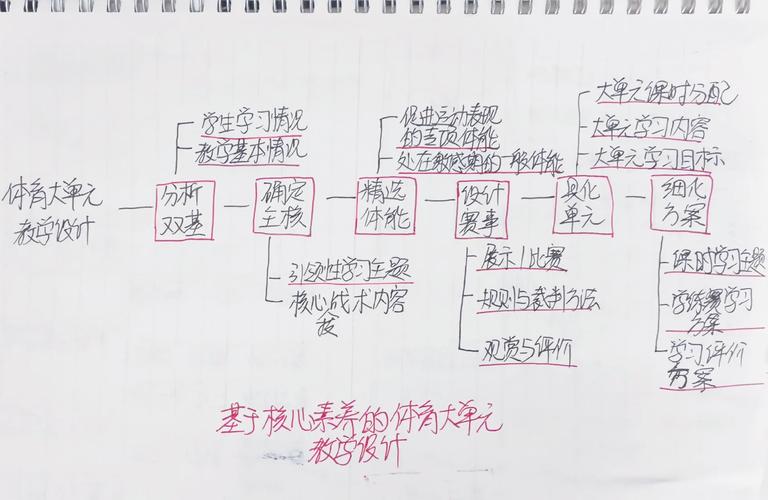 体育大单元
教学设计
学生学习情况
教学基本情况
分析
双基
确定
主核
引领性学习主题
核心战术内容
技
促进运动表现
的专项体能
处在敏感期的一般体能
精选
体能
设计
赛事
展示/比赛
规则与裁判方法
观赏与评价
大单元课时分配
大单元学习内容
大单元学习目标
具化
单元
细化
方案
课时学习主题
学练赛学习
方案
学习评价
方案
基于核心素养的体育大单元
教学设计